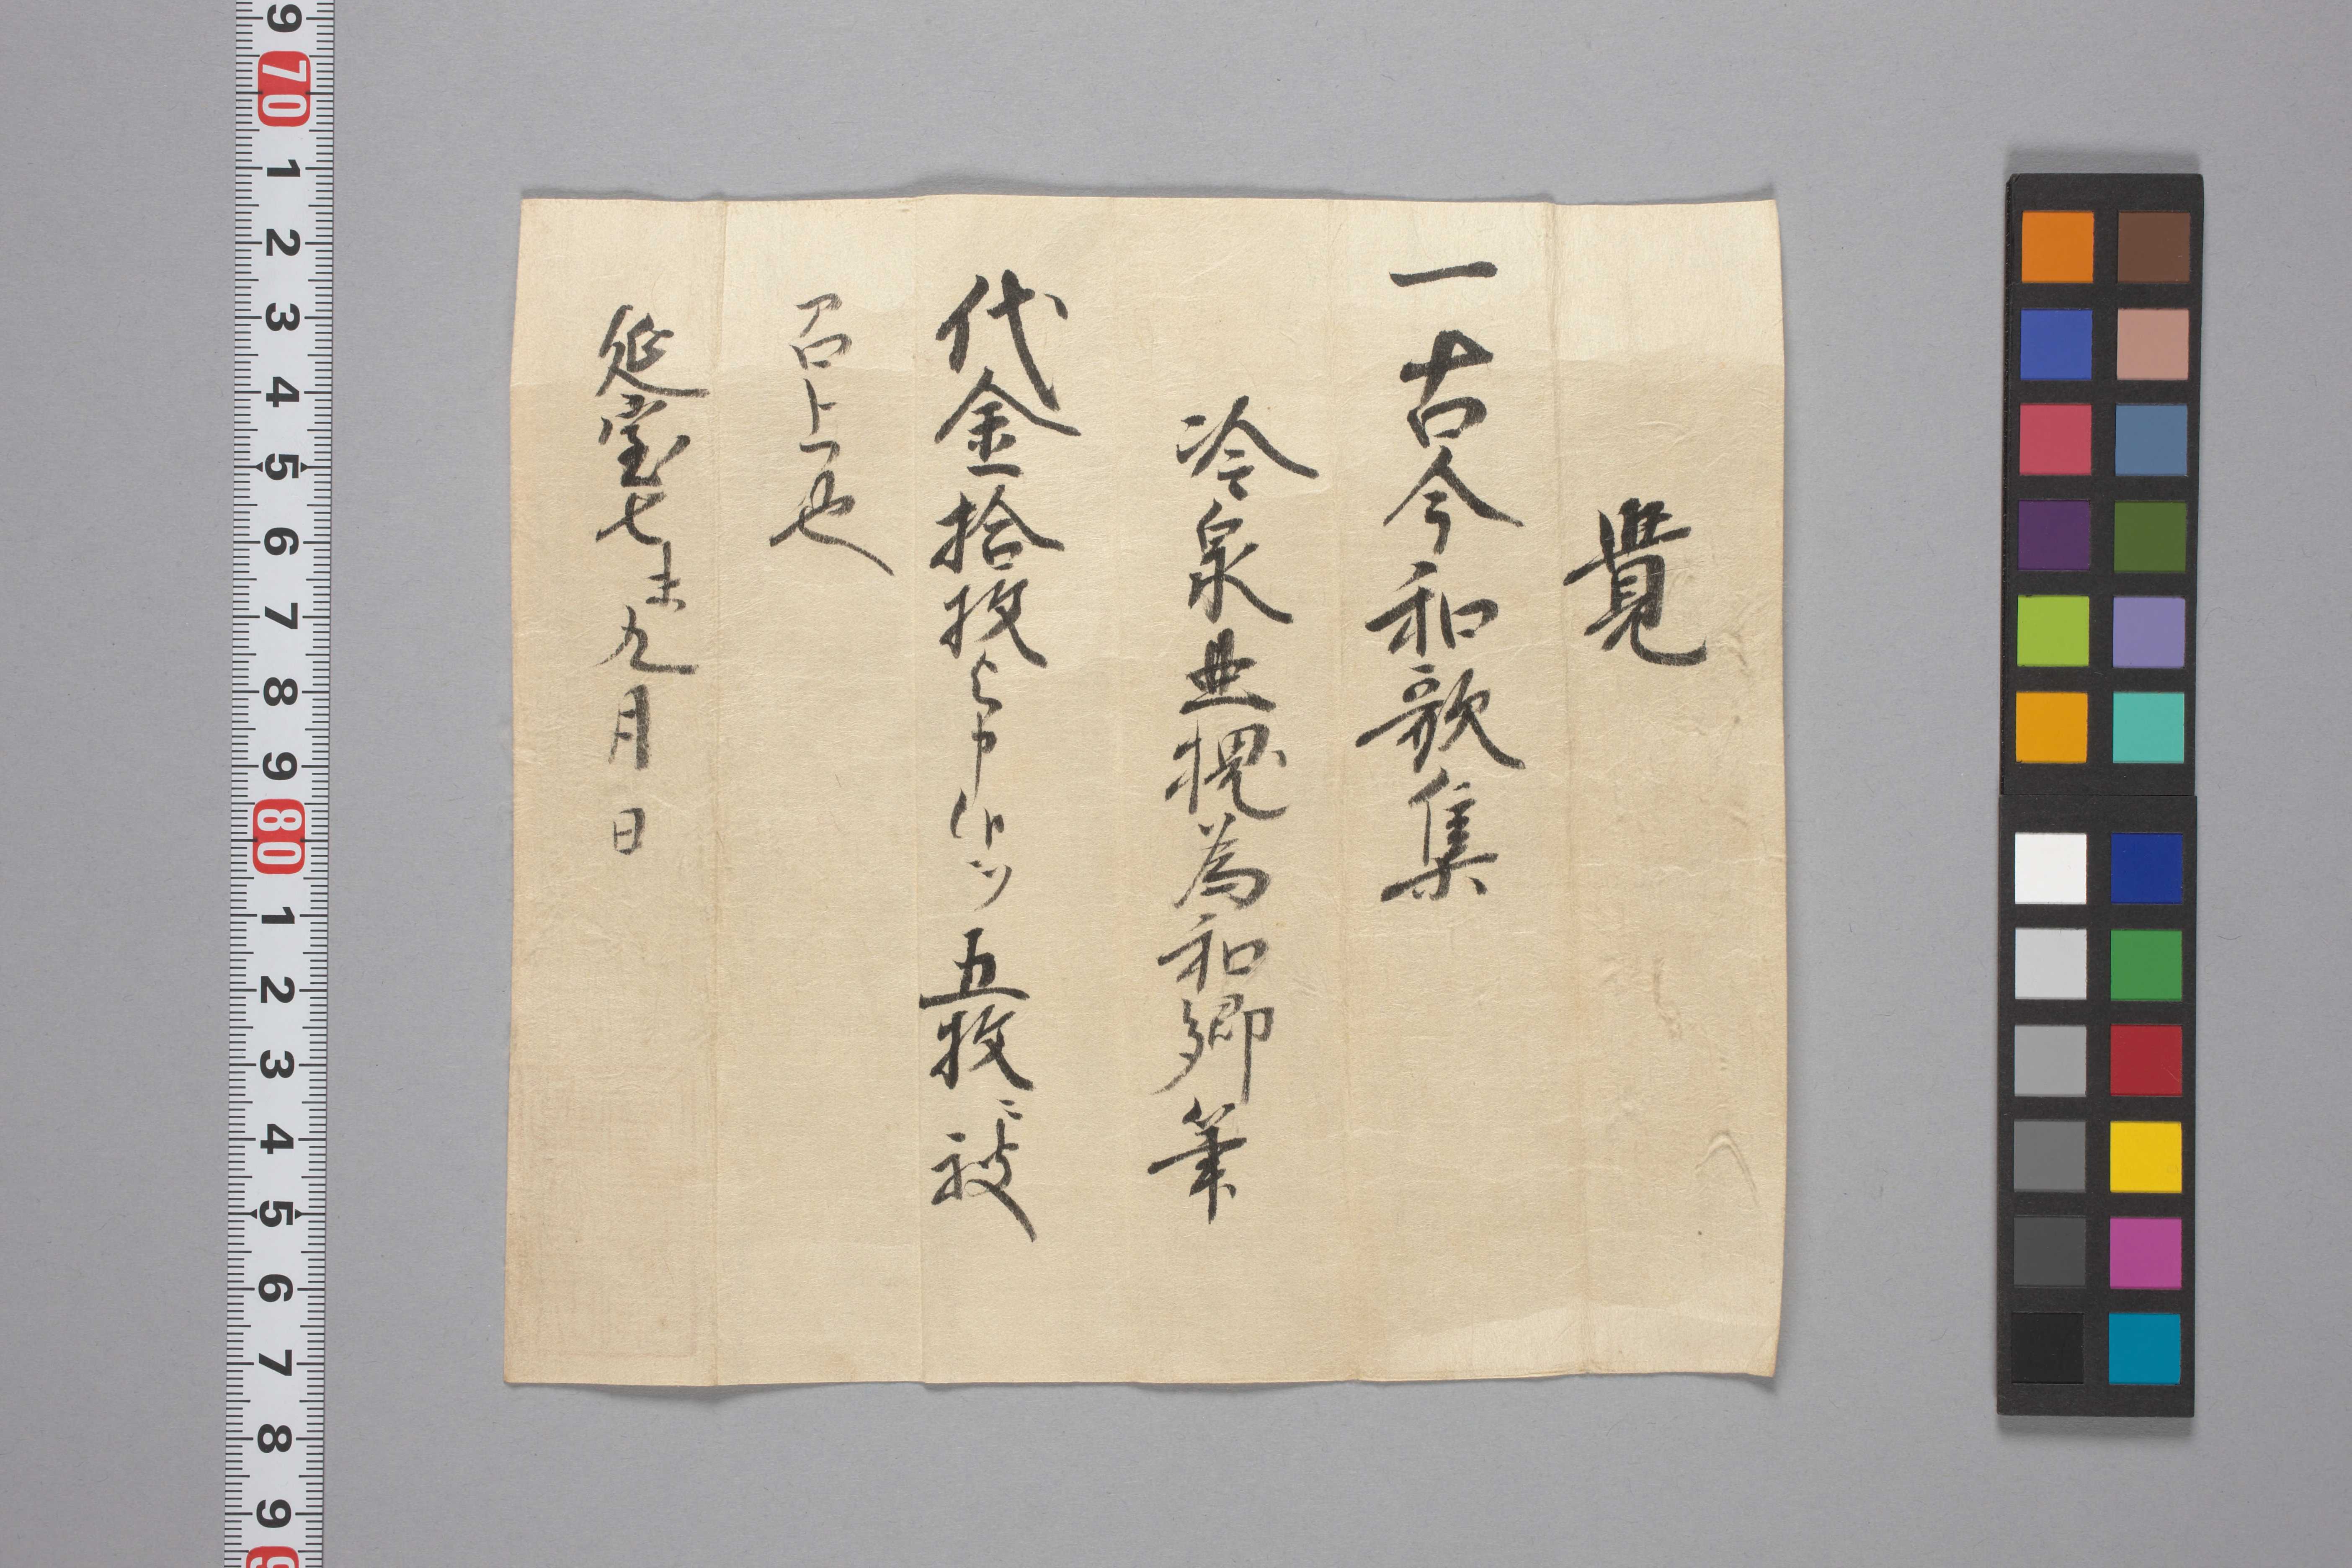 覺
一古今和歌集
冷泉亜槐為和卿筆
代金拾枚与申候 五枚ニ被
召上也
延宝七未九月日
9 70 1 2 3 4 5 6 7 8 9 80 1 2 3 4 5 6 7 8 9